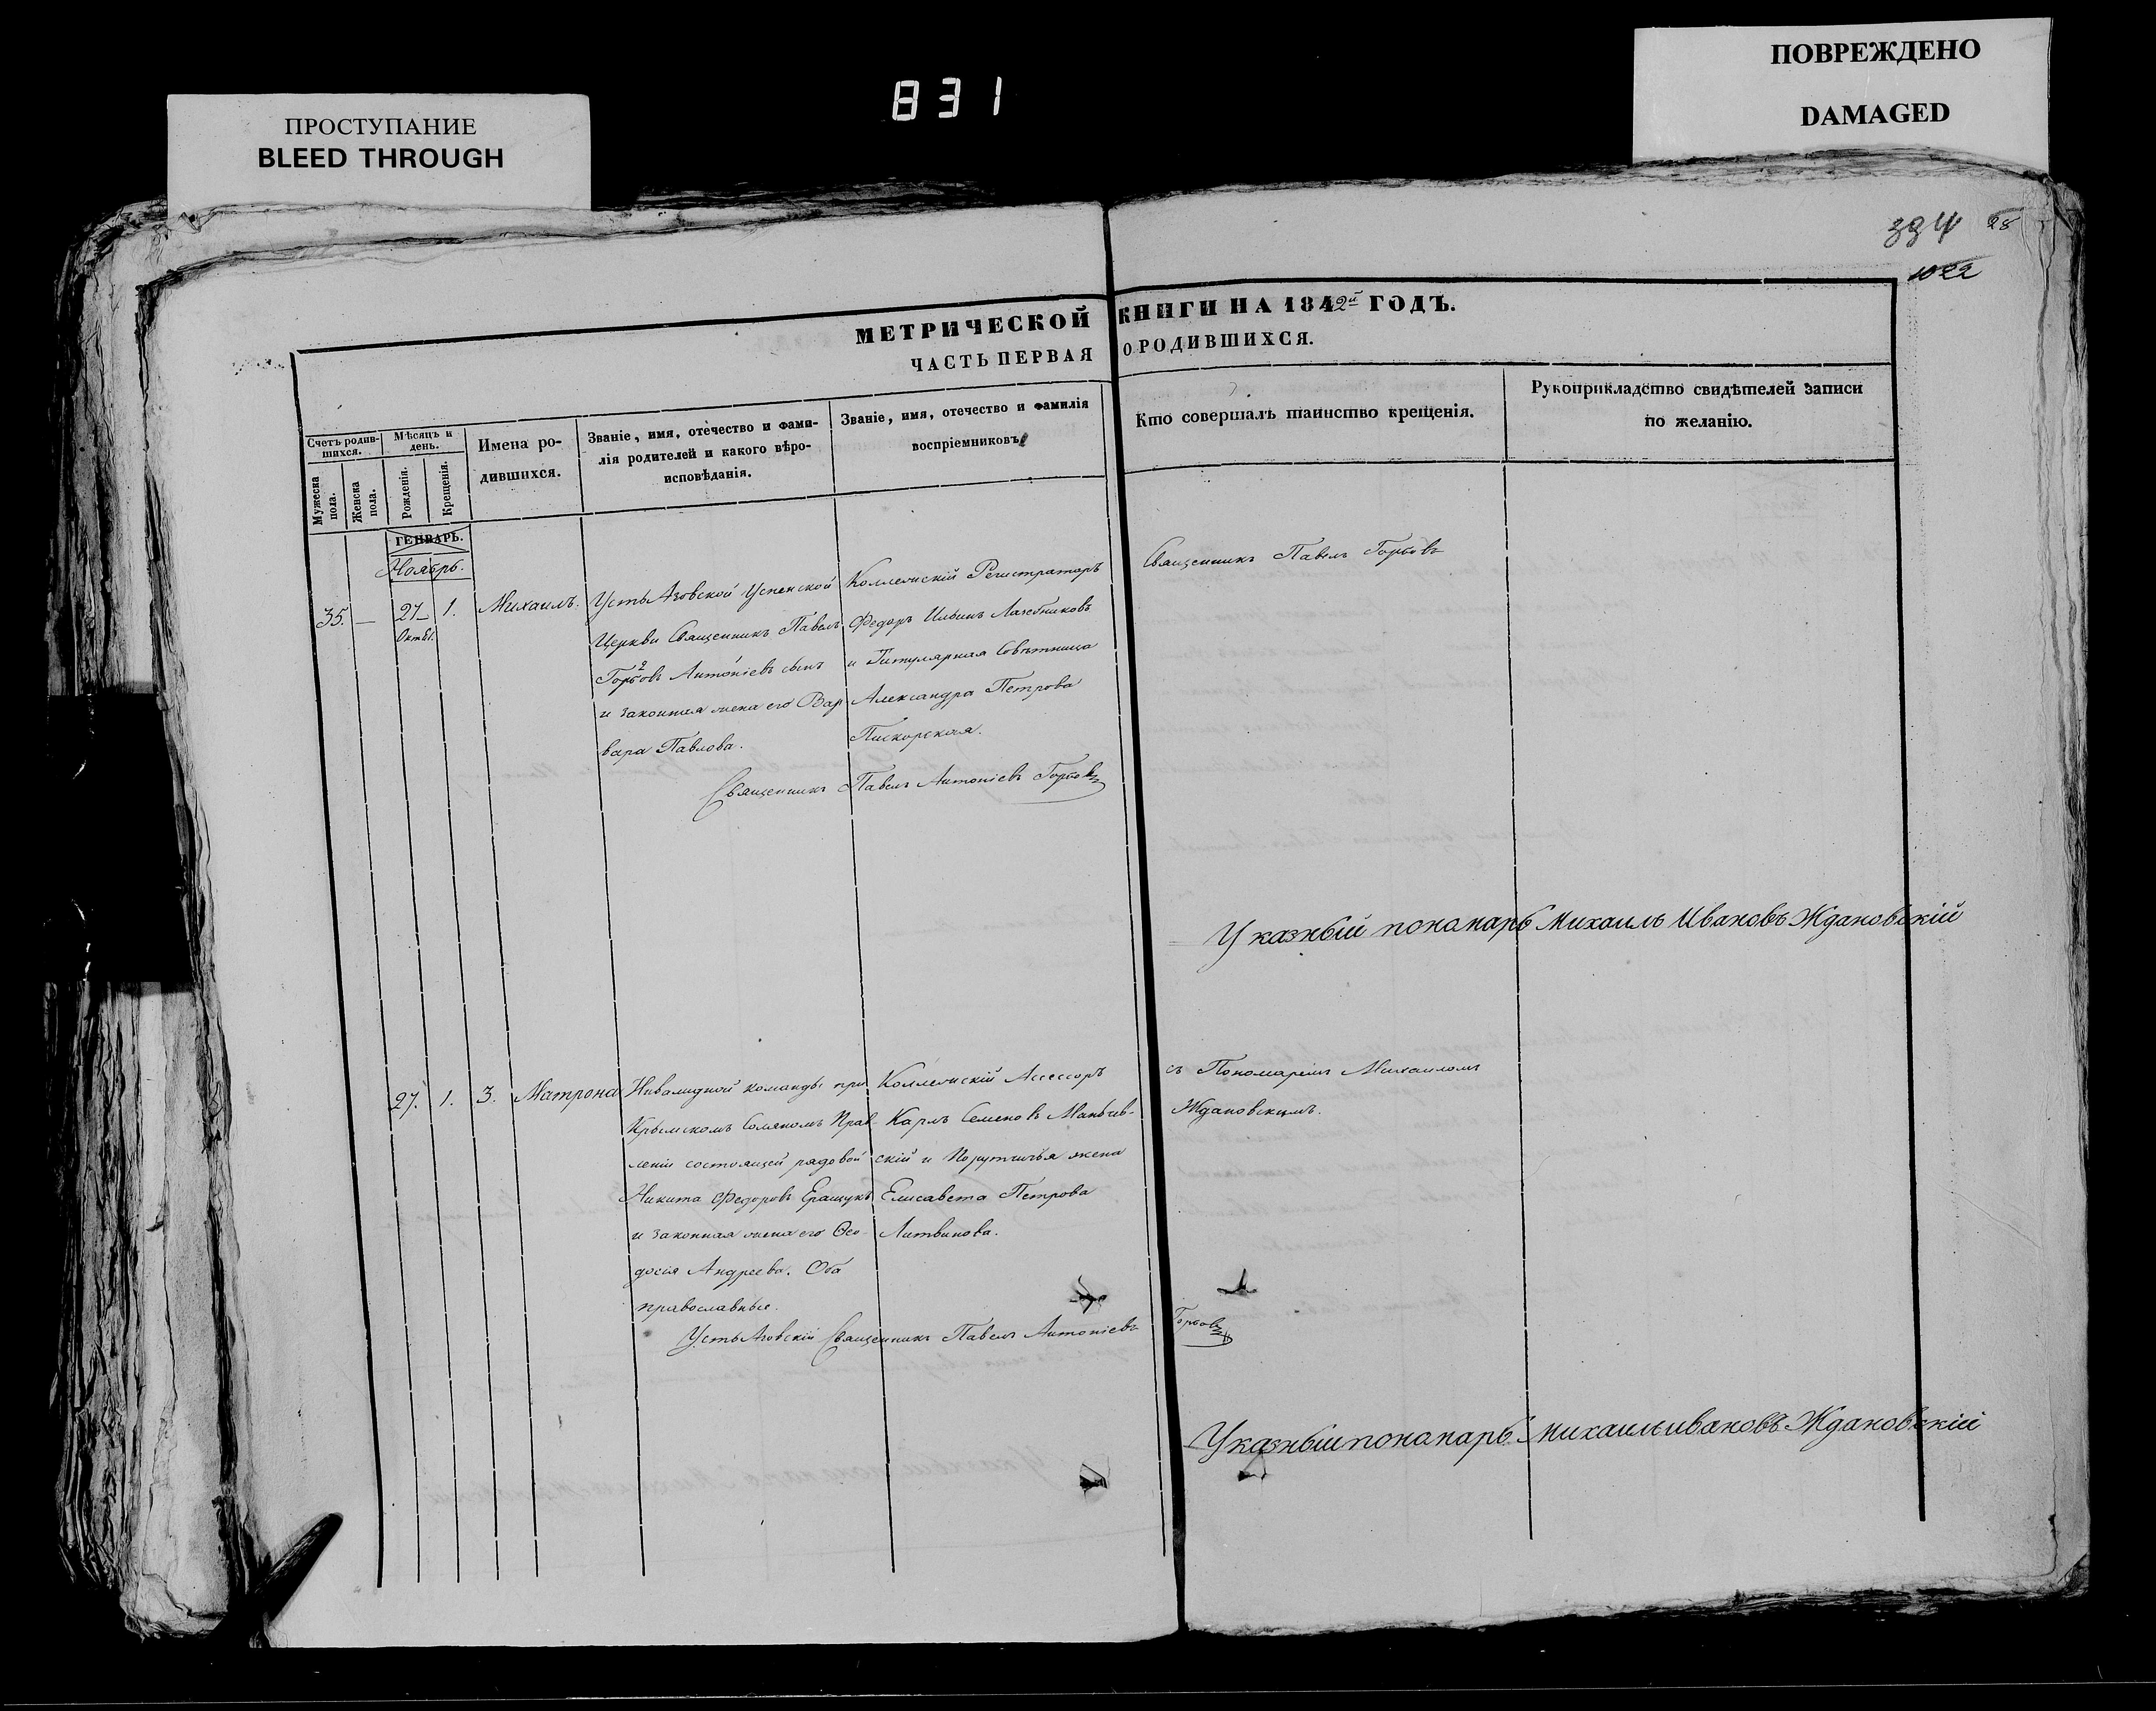 ПРОСТУПАНИЕ
BLEED THROUGH
831
ПОВРЕЖДЕНО
DAMAGED
394 28
1022
МЕТРИЧЕСКОЙ КНИГИ НА 1842й ГОДЪ.
ЧАСТЬ ПЕРВАЯ О РОДИВШИХСЯ.
Счетъ родив-
шихся.
Мужеска
пола.
Женска
пола.
Мѣсяцъ и
день.
Рожденія.
Крещенія.
Имена ро-
дившихся.
Званіе, имя, отечество и фами-
лія родителей и какого вѣро-
исповѣданія.
Званіе, имя, отечество и фамилія
воспріемниковъ
Кто совершалъ таинство крещенія.
Рукоприкладство свидѣтелей записи
по желанію.
ГЕНВАРЬ.
Ноябрь.
35. — 27 1. Михаилъ.
Октб.
Усть Азовской Успенской
Церкви Священникъ Павелъ
Горбовъ Антоніевъ сынъ
и законная жена его Вар
вара Павлова.
Коллежскій Регистраторъ
Федоръ Ильинъ Лазебниковъ
и Титулярная Совѣтница
Александра Петрова
Пискорская.
Священникъ Павелъ Горбовъ
Священникъ Павелъ Антоніевъ Горбовъ
Указный понамарь Михаилъ Ивановъ Ждановскій
27. 1. 3. Матрона
Инвалидной команды при
Крымскомъ Соляномъ Прав
леніи состоящей рядовой
Никита Федоровъ Еращукъ
и законная жена его Ѳео-
досія Андреева. Оба
православные.
Коллежскій Асессоръ
Карлъ Семеновъ Маньчев-
скій и Порутчичья жена
Елисавета Петрова
Литвинова.
съ Пономаремъ Михаиломъ
Ждановскимъ.
Усть Азовскій Священникъ Павелъ Антоніевъ Горбовъ
Указный понамарь Михаилъ Ивановъ Ждановскій